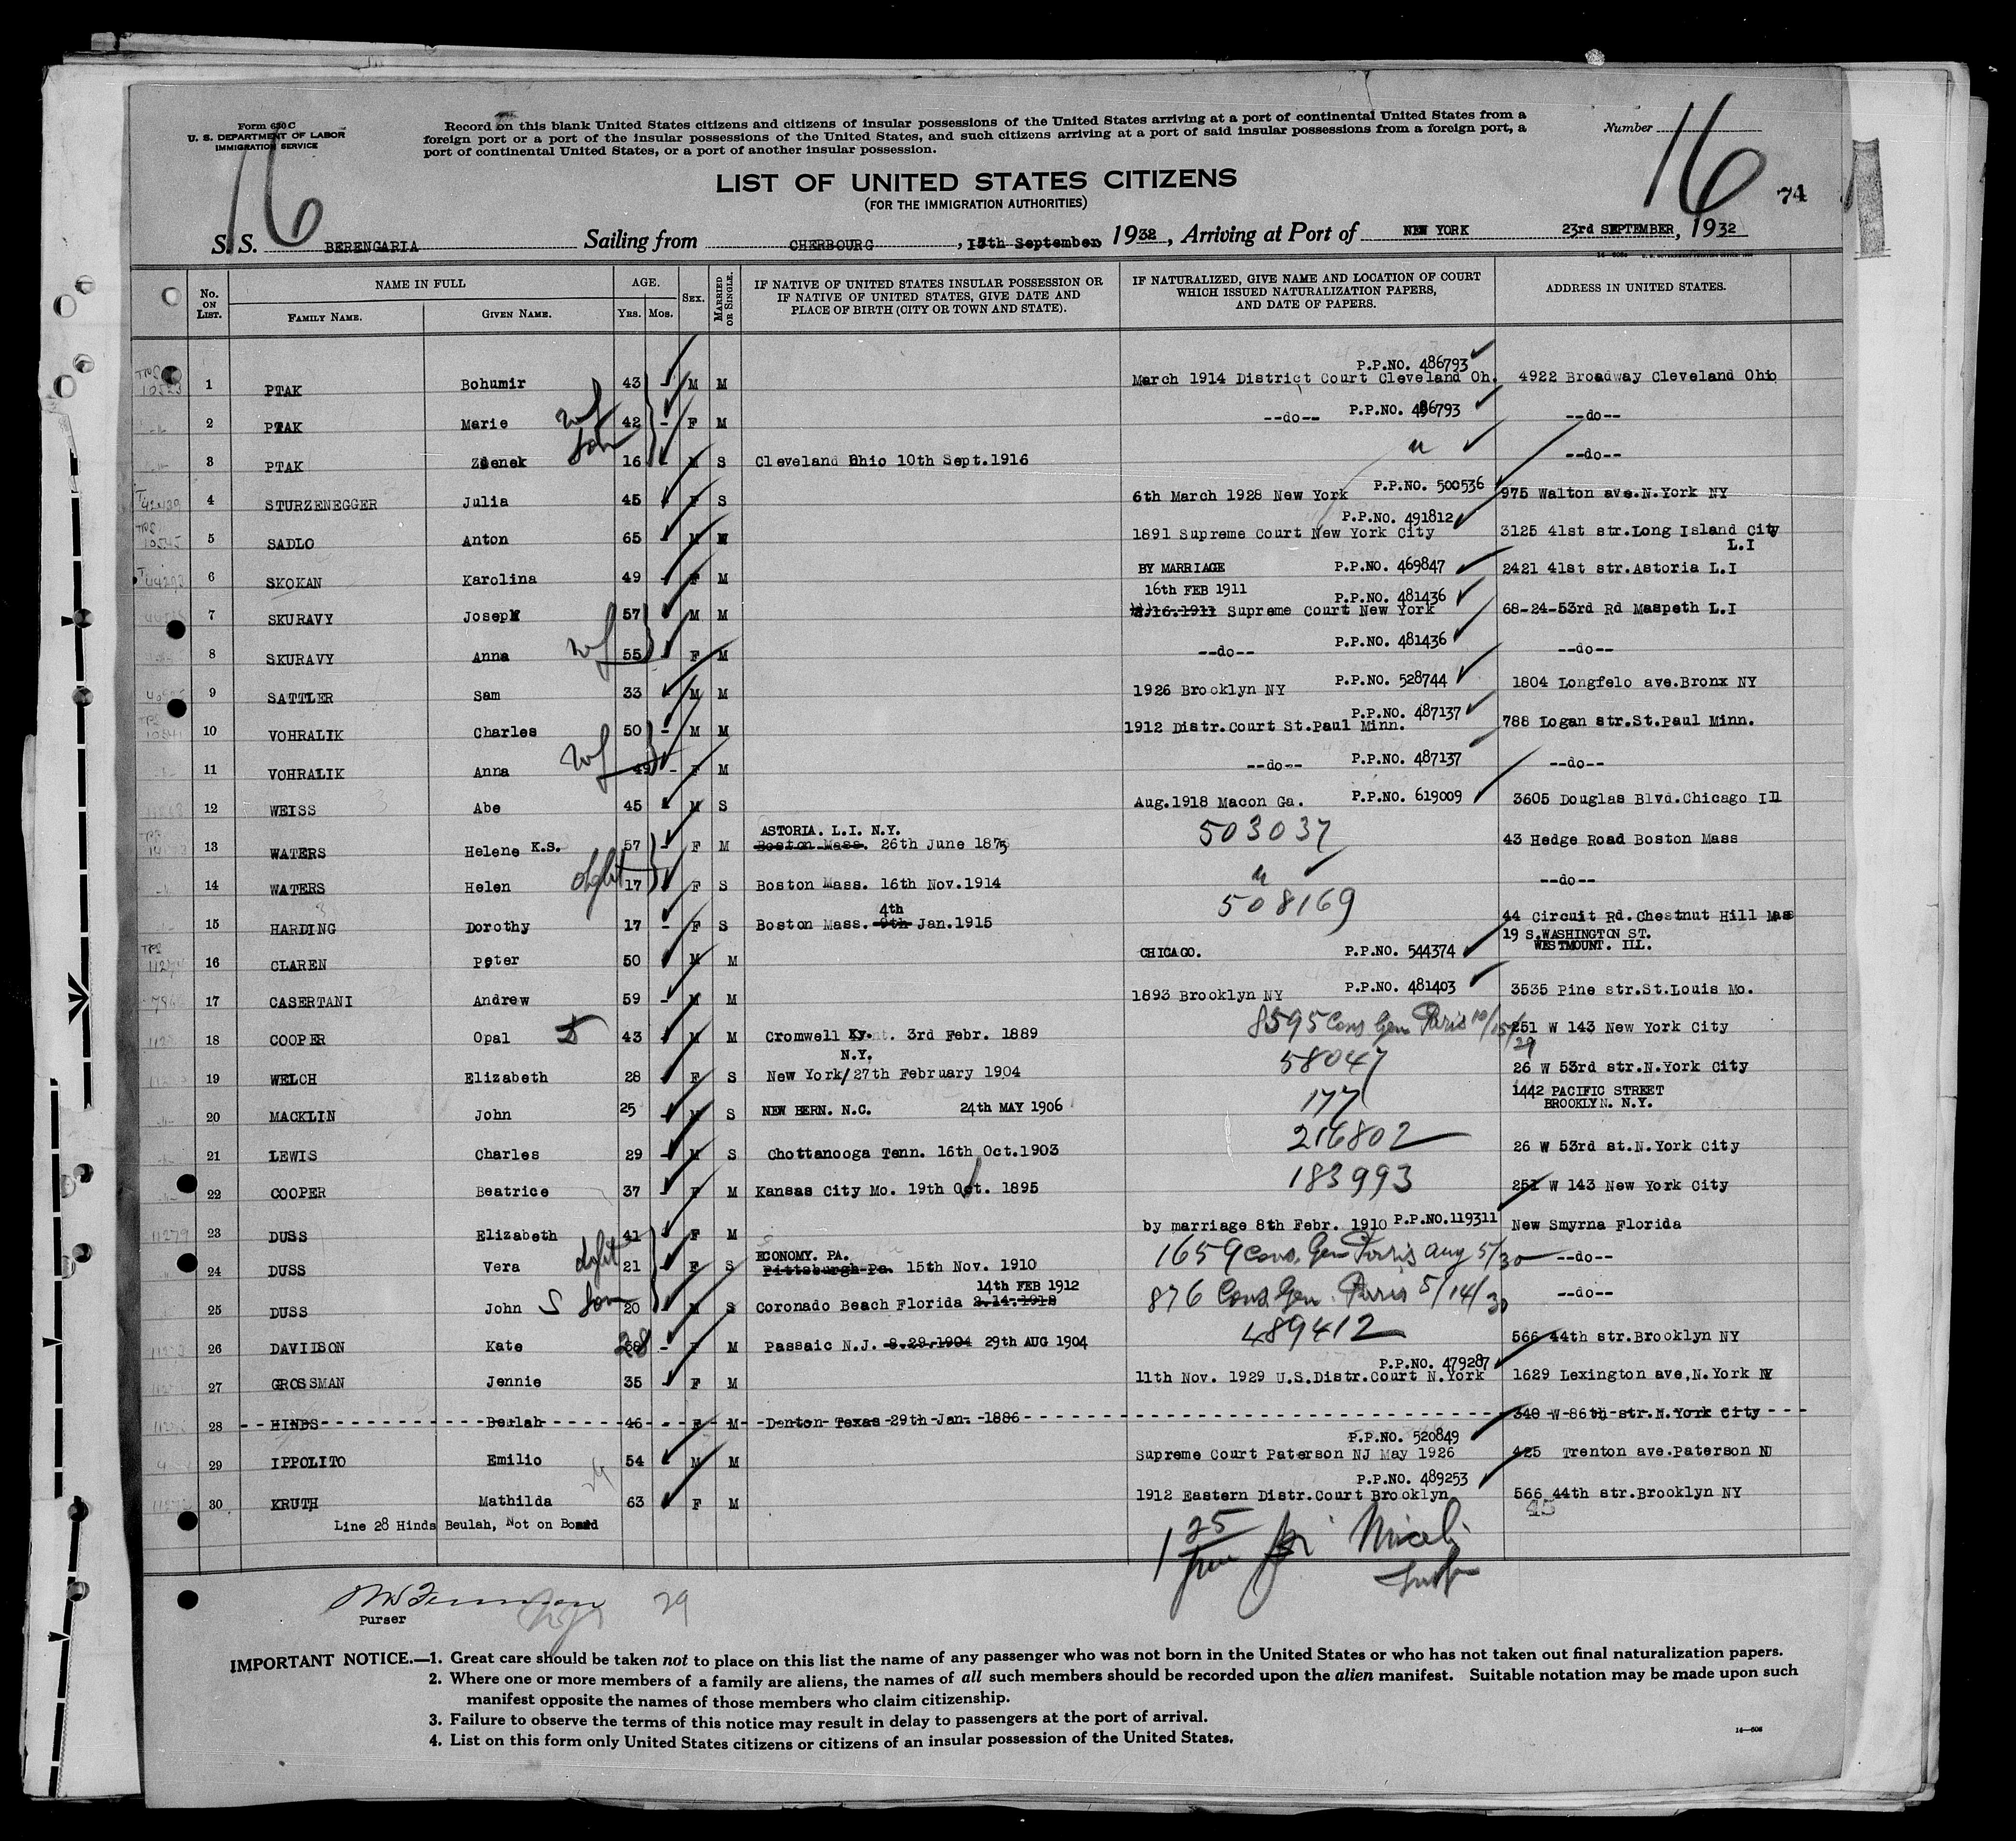 Form 630 C
U. S. DEPARTMENT OF LABOR
IMMIGRATION SERVICE
Record on this blank United States citizens and citizens of insular possessions of the United States arriving at a port of continental United States from a
foreign port or a port of the insular possessions of the United States, and such citizens arriving at a port of said insular possessions from a foreign port, a
port of continental United States, or a port of another insular possession.
Number
16
16
74
LIST OF UNITED STATES CITIZENS
(FOR THE IMMIGRATION AUTHORITIES)
S. S. BERENGARIA Sailing from CHERBOURG, 15th September 1932, Arriving at Port of NEW YORK 23rd SEPTEMBER, 1932
No. ON LIST. NAME IN FULL FAMILY NAME. GIVEN NAME. AGE. YRS. MOS. SEX. MARRIED OR SINGLE. IF NATIVE OF UNITED STATES INSULAR POSSESSION OR IF NATIVE OF UNITED STATES, GIVE DATE AND PLACE OF BIRTH (CITY OR TOWN AND STATE). IF NATURALIZED, GIVE NAME AND LOCATION OF COURT WHICH ISSUED NATURALIZATION PAPERS, AND DATE OF PAPERS. ADDRESS IN UNITED STATES.
P.P.NO. 486793
1 PTAK Bohumir 43 - M M March 1914 District Court Cleveland Oh. 4922 Broadway Cleveland Ohio
2 PTAK Marie wf 42 - F M --do-- P.P.NO. 486793 --do--
3 PTAK Zdenek son 16 - M S Cleveland Ohio 10th Sept.1916 " --do--
4 STURZENEGGER Julia 45 - F S 6th March 1928 New York P.P.NO. 500536 975 Walton ave.N.York NY
P.P.NO. 491812
5 SADLO Anton 65 - M M 1891 Supreme Court New York City 3125 41st str.Long Island City
L.I
6 SKOKAN Karolina 49 - F M BY MARRIAGE P.P.NO. 469847 2421 41st str.Astoria L.I
16th FEB 1911 P.P.NO. 481436
7 SKURAVY Joseph 57 - M M 2.16.1911 Supreme Court New York 68-24-53rd Rd Maspeth L.I
8 SKURAVY Anna wf 55 - F M --do-- P.P.NO. 481436 --do--
9 SATTLER Sam 33 M M 1926 Brooklyn NY P.P.NO. 528744 1804 Longfelo ave.Bronx NY
P.P.NO. 487137
10 VOHRALIK Charles 50 - M M 1912 Distr.Court St.Paul Minn. 788 Logan str.St.Paul Minn.
11 VOHRALIK Anna wf 49 - F M --do-- P.P.NO. 487137 --do--
12 WEISS Abe 45 - M S Aug.1918 Macon Ga. P.P.NO. 619009 3605 Douglas Blvd.Chicago Ill
ASTORIA. L.I. N.Y.
13 WATERS Helene K.S. 57 - F M Boston Mass. 26th June 1875 503037 43 Hedge Road Boston Mass
14 WATERS Helen dght 17 - F S Boston Mass. 16th Nov.1914 " --do--
4th
15 HARDING Dorothy 17 - F S Boston Mass. 9th Jan.1915 508169 44 Circuit Rd.Chestnut Hill Mass
19 S.WASHINGTON ST.
WESTMOUNT. ILL.
16 CLAREN Peter 50 M M CHICAGO. P.P.NO. 544374
17 CASERTANI Andrew 59 - M M 1893 Brooklyn NY P.P.NO. 481403 3535 Pine str.St.Louis Mo.
18 COOPER Opal 43 - M M Cromwell Ky. 3rd Febr. 1889 8595 Cons Gen Paris 10/15/29 251 W 143 New York City
N.Y.
19 WELCH Elizabeth 28 F S New York/27th February 1904 58047 26 W 53rd str.N.York City
1442 PACIFIC STREET
BROOKLYN. N.Y.
20 MACKLIN John 25 - M S NEW BERN. N.C. 24th MAY 1906 177
21 LEWIS Charles 29 - M S Chottanooga Tenn. 16th Oct.1903 216802 26 W 53rd st.N.York City
22 COOPER Beatrice 37 - F M Kansas City Mo. 19th Oct. 1895 183993 251 W 143 New York City
23 DUSS Elizabeth 41 - F M by marriage 8th Febr. 1910 P.P.NO.119311 New Smyrna Florida
ECONOMY. PA.
24 DUSS Vera dght 21 - F S Pittsburgh Pa. 15th Nov. 1910 1659 Cons. Gen Paris Aug 5/30 --do--
14th FEB 1912
25 DUSS John S son 20 M S Coronado Beach Florida 2.14.1912 876 Cons. Gen. Paris 5/14/30 --do--
26 DAVIDSON Kate 28 - F M Passaic N.J. 8.29.1904 29th AUG 1904 489412 566 44th str.Brooklyn NY
P.P.NO. 479287
27 GROSSMAN Jennie 35 F M 11th Nov. 1929 U.S.Distr.Court N.York 1629 Lexington ave,N.York NY
28 HINDS Beulah 46 - F M Denton Texas 29th Jan. 1886 340 W 86th str.N.York City
P.P.NO. 520849
29 IPPOLITO Emilio 54 M M Supreme Court Paterson NJ May 1926 425 Trenton ave.Paterson NJ
P.P.NO. 489253
30 KRUTH Mathilda 63 F M 1912 Eastern Distr.Court Brooklyn 566 44th str.Brooklyn NY
45
Line 28 Hinds Beulah, Not on Board
Purser
29
IMPORTANT NOTICE.—1. Great care should be taken not to place on this list the name of any passenger who was not born in the United States or who has not taken out final naturalization papers.
2. Where one or more members of a family are aliens, the names of all such members should be recorded upon the alien manifest. Suitable notation may be made upon such
manifest opposite the names of those members who claim citizenship.
3. Failure to observe the terms of this notice may result in delay to passengers at the port of arrival.
4. List on this form only United States citizens or citizens of an insular possession of the United States.